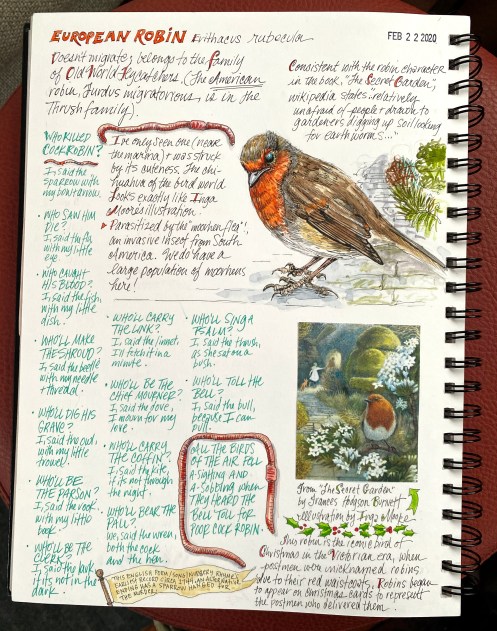 EUROPEAN ROBIN Erithacus rubecula
FEB 22 2020
Doesn't migrate; belongs to the family
of Old World Flycatchers. (The American
robin, Turdus migratorious, is in the
Thrush family).
Consistent with the robin character
in the book, "The Secret Garden",
wikipedia states: relatively
unafraid of people + drawn to
gardeners digging up soil looking
for earth worms..."
WHO KILLED
COCK ROBIN?
I, said the
sparrow with
my bow + arrow.
• WHO SAW HIM
DIE?
I, said the fly,
with my little
eye.
• WHO CAUGHT
HIS BLOOD?
I, said the fish,
with my little
dish.
• WHO'LL MAKE
THE SHROUD?
I, said the beetle
with my needle
+ thread.
• WHO'LL DIG HIS
GRAVE?
I, said the owl,
with my little
trowel.
• WHO'LL BE
THE PARSON?
I, said the rook
with my little
book.
• WHO'LL BE
THE CLERK?
I, said the lark
if it's not in the
dark.
I've only seen one (near
the marina) + was struck
by its cuteness. The chi-
huahua of the bird world.
Looks exactly like Inga
Moore's illustration.
Parasitized by the "moorhen flea",
an invasive insect from South
America. We do have a
large population of moorhens
here!
• WHO'LL CARRY
THE LINK?
I, said the linnet,
I'll fetch it in a
minute.
• WHO'LL BE THE
CHIEF MOURNER?
I, said the dove,
I mourn for my
love.
• WHO'LL CARRY
THE COFFIN?
I, said the kite,
if it's not through
the night.
• WHO'LL BEAR THE
PALL?
We, said the wren,
both the cock
and the hen.
• WHO'LL SING A
PSALM?
I, said the thrush,
as she sat on a
bush.
• WHO'LL TOLL THE
BELL?
I, said the bull,
because I can
pull.
ALL THE BIRDS
OF THE AIR FELL
A SIGHING AND
A SOBBING WHEN
THEY HEARD THE
BELL TOLL FOR
POOR COCK ROBIN.
THIS ENGLISH POEM/SONG/NURSERY RHYME,
EARLIEST RECORD CIRCA 1744. AN ALTERNATIVE
ENDING HAS A SPARROW HANGED FOR
THE MURDER.
From "The Secret Garden"
by Frances Hodgson Burnett
illustration by Inga Moore
The robin is the iconic bird of
Christmas in the Victorian era, when
postmen were nicknamed robins
due to their red waistcoats. Robins began
to appear on Christmas cards to represent
the postmen who delivered them.